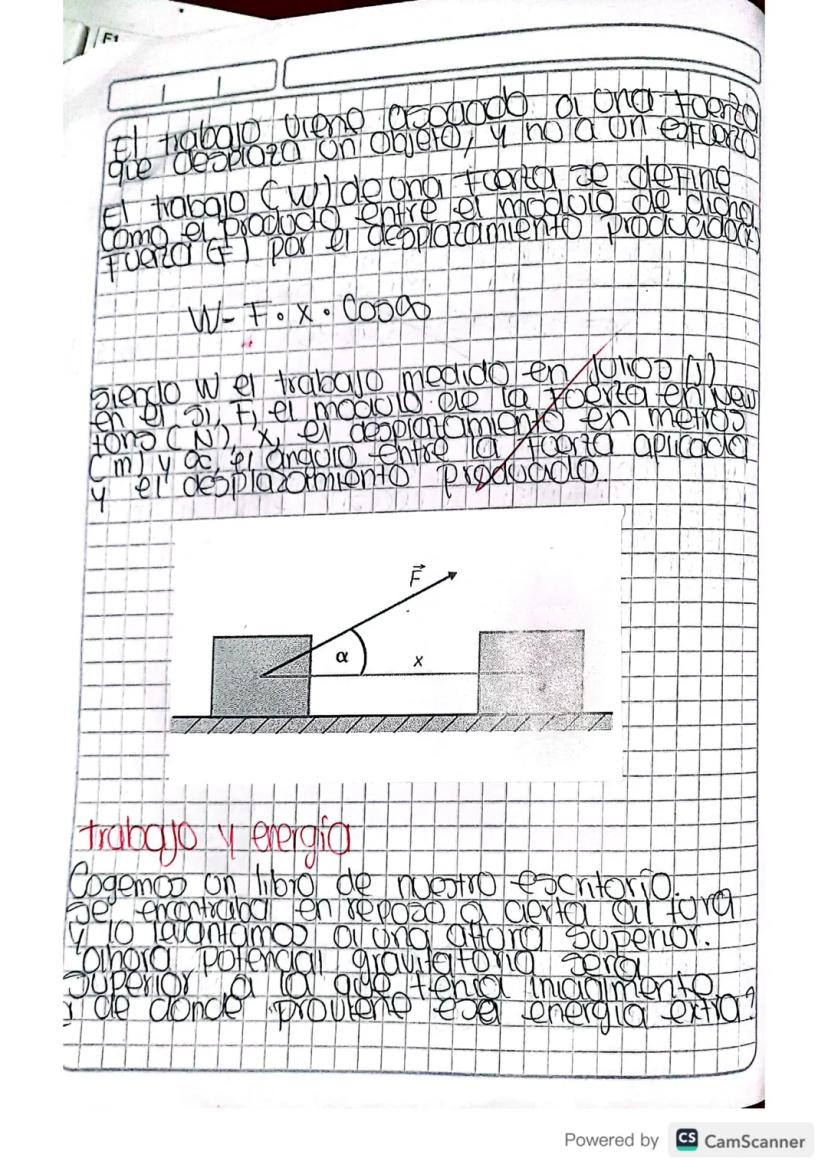 F1
El trabajo viene asociado a una fuerza
que desplaza un objeto, y no a un esfuerzo
El trabajo (W) de una fuerza se define
como el producto entre el modulo de dicha
Fuerza (F) por el desplazamiento producido(x)
W = F · x · Cosα
Siendo W el trabajo medido en Julios (J)
en el SI, F, el modulo de la fuerza en New
tons (N), x, el desplazamiento en metros
(m) y α, el ángulo entre la fuerza aplicada
y el desplazamiento producido.
F
α x
trabajo y energía
Cogemos un libro de nuestro escritorio.
Se encontraba en reposo a cierta altura
y lo levantamos a una altura superior.
ahora potencial gravitatoria sera
superior a la que tenia inicialmente
¿ de donde proviene esa energia extra?
Powered by CS CamScanner